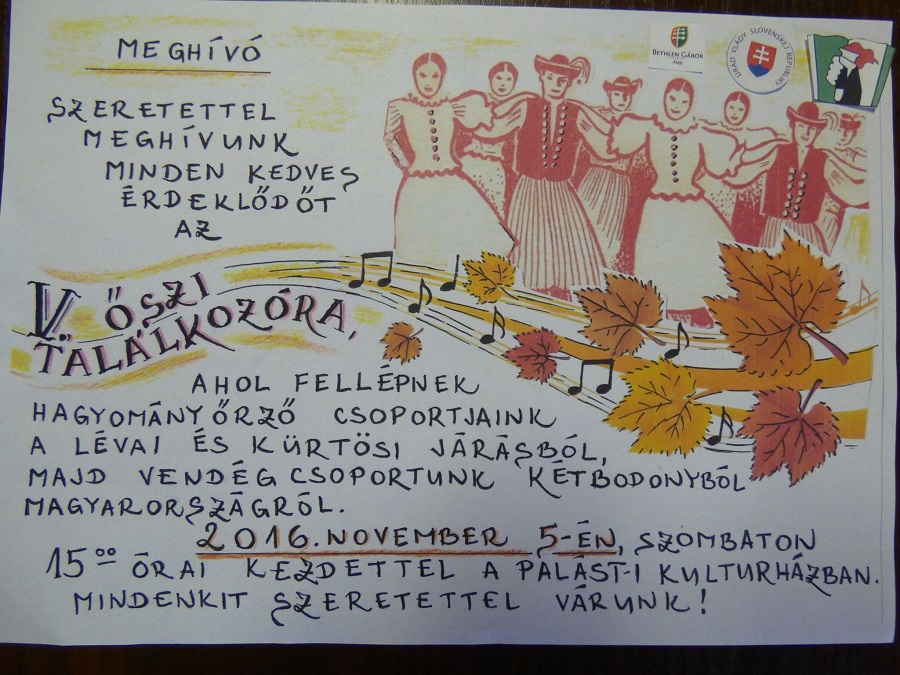 MEGHÍVÓ
SZERETETTEL
MEGHÍVUNK
MINDEN KEDVES
ÉRDEKLŐDŐT
AZ
V. ŐSZI
TALÁLKOZÓRA,
AHOL FELLÉPNEK
HAGYOMÁNYŐRZŐ CSOPORTJAINK
A LÉVAI ÉS KÜRTÖSI JÁRÁSBÓL,
MAJD VENDÉGCSOPORTUNK KÉTBODONYBÓL
MAGYARORSZÁGRÓL.
2016. NOVEMBER 5-ÉN, SZOMBATON
15⁰⁰ ÓRAI KEZDETTEL A PALÁST-I KULTURHÁZBAN.
MINDENKIT SZERETETTEL VÁRUNK!
BETHLEN GÁBOR
Alap
ÚRAD VLÁDY SLOVENSKEJ REPUBLIKY